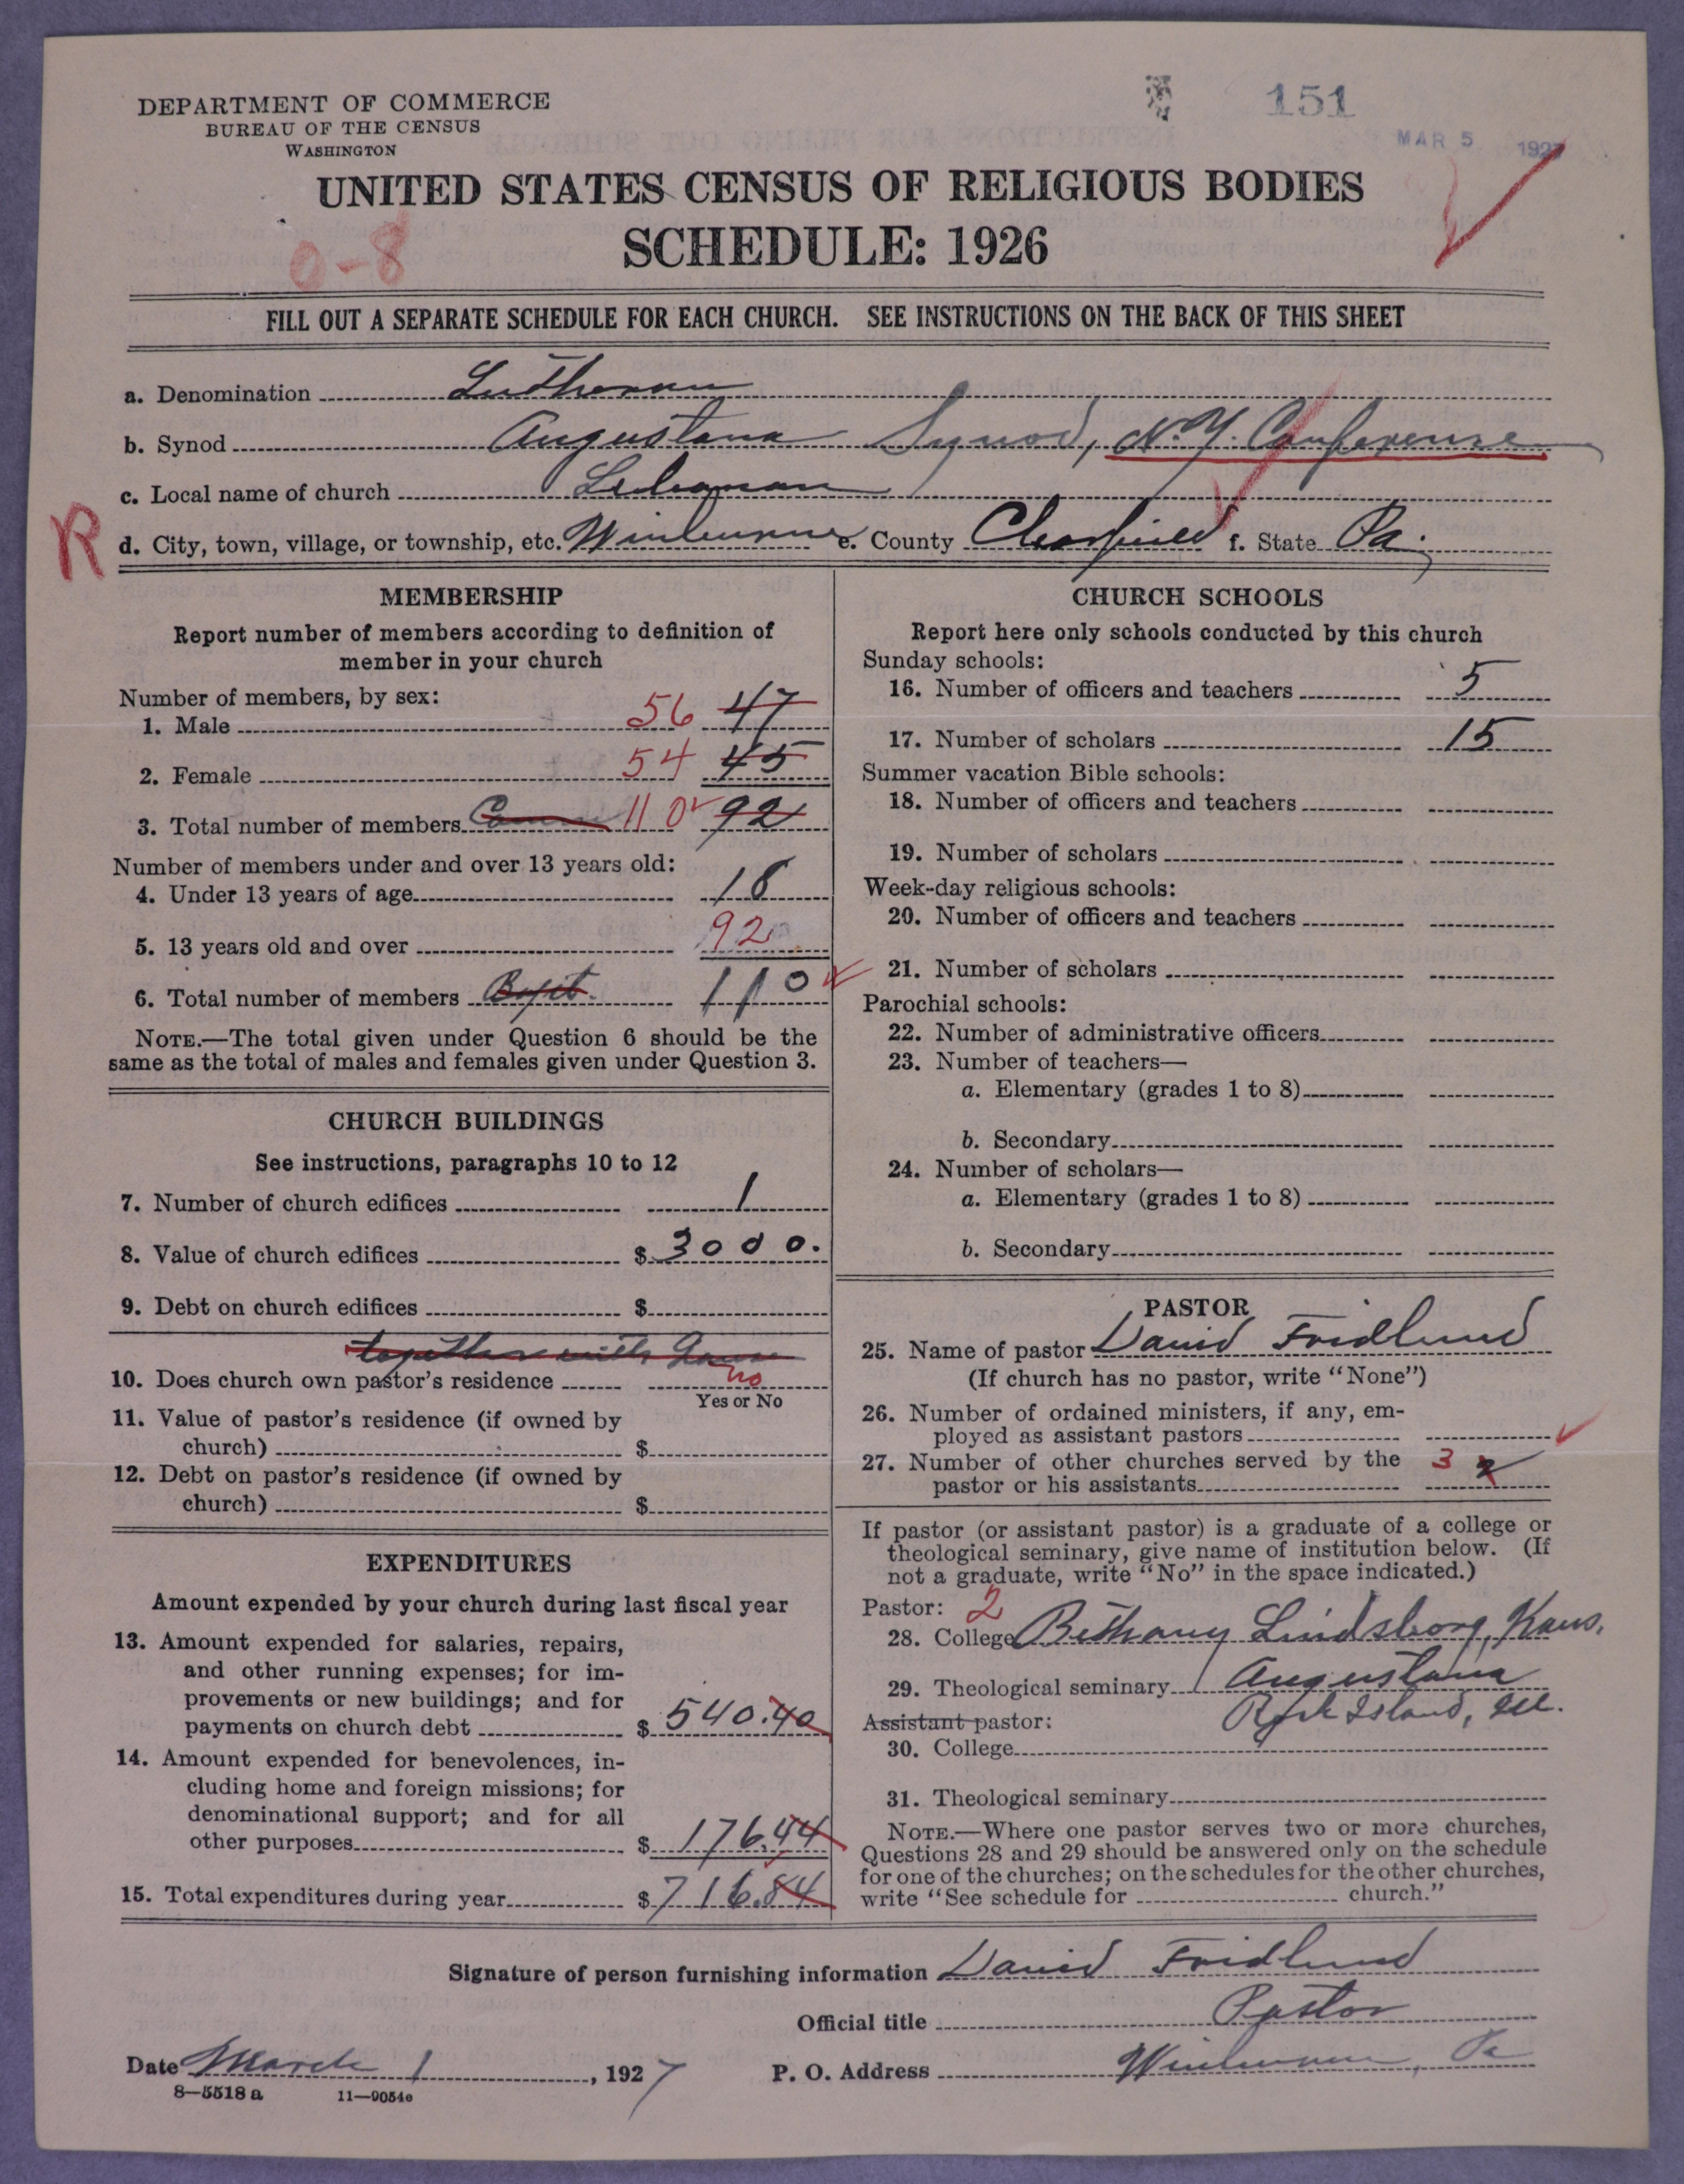 151
MAR 5 1927
DEPARTMENT OF COMMERCE
BUREAU OF THE CENSUS
WASHINGTON
UNITED STATES CENSUS OF RELIGIOUS BODIES
SCHEDULE: 1926
0-8
FILL OUT A SEPARATE SCHEDULE FOR EACH CHURCH. SEE INSTRUCTIONS ON THE BACK OF THIS SHEET
a. Denomination Lutheran
b. Synod Augustana Synod, N.Y. Conference
c. Local name of church Lebanon
R
d. City, town, village, or township, etc. Winburne e. County Clearfield f. State Pa.
MEMBERSHIP
Report number of members according to definition of
member in your church
Number of members, by sex:
1. Male 56 47
2. Female 54 45
3. Total number of members 110 92
Number of members under and over 13 years old:
4. Under 13 years of age 18
5. 13 years old and over 92
6. Total number of members Bapt. 110
NOTE.—The total given under Question 6 should be the
same as the total of males and females given under Question 3.
CHURCH BUILDINGS
See instructions, paragraphs 10 to 12
7. Number of church edifices 1
8. Value of church edifices $ 3000.
9. Debt on church edifices $
together with
10. Does church own pastor's residence no
Yes or No
11. Value of pastor's residence (if owned by
church) $
12. Debt on pastor's residence (if owned by
church) $
EXPENDITURES
Amount expended by your church during last fiscal year
13. Amount expended for salaries, repairs,
and other running expenses; for im-
provements or new buildings; and for
payments on church debt $ 540.40
14. Amount expended for benevolences, in-
cluding home and foreign missions; for
denominational support; and for all
other purposes $ 176.44
15. Total expenditures during year $ 716.84
CHURCH SCHOOLS
Report here only schools conducted by this church
Sunday schools:
16. Number of officers and teachers 5
17. Number of scholars 15
Summer vacation Bible schools:
18. Number of officers and teachers
19. Number of scholars
Week-day religious schools:
20. Number of officers and teachers
21. Number of scholars
Parochial schools:
22. Number of administrative officers
23. Number of teachers—
a. Elementary (grades 1 to 8)
b. Secondary
24. Number of scholars—
a. Elementary (grades 1 to 8)
b. Secondary
PASTOR
25. Name of pastor David Fridlund
(If church has no pastor, write "None")
26. Number of ordained ministers, if any, em-
ployed as assistant pastors
27. Number of other churches served by the 3 2
pastor or his assistants
If pastor (or assistant pastor) is a graduate of a college or
theological seminary, give name of institution below. (If
not a graduate, write "No" in the space indicated.)
Pastor: 2
28. College Bethany Lindsborg, Kans.
29. Theological seminary Augustana
Rock Island, Ill.
Assistant pastor:
30. College
31. Theological seminary
NOTE.—Where one pastor serves two or more churches,
Questions 28 and 29 should be answered only on the schedule
for one of the churches; on the schedules for the other churches,
write "See schedule for church."
Signature of person furnishing information David Fridlund
Official title Pastor
Date March 1, 1927 P. O. Address Winburne, Pa
8—5518 a 11—9054e